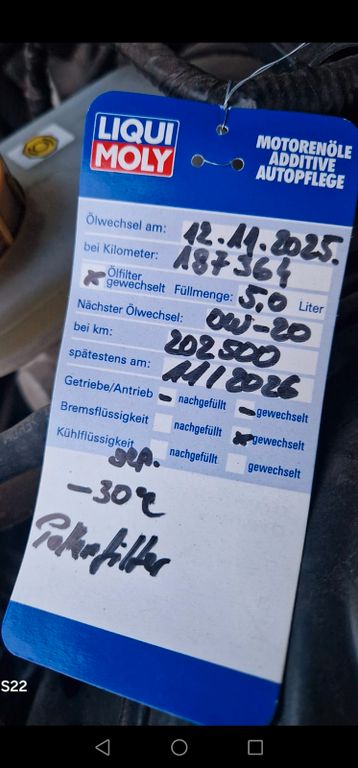 LIQUI
MOLY
MOTORENÖLE
ADDITIVE
AUTOPFLEGE
Ölwechsel am: 12.11.2025.
bei Kilometer: 187364
x Ölfilter gewechselt Füllmenge: 5,0 Liter
Nächster Ölwechsel: 0W-20
bei km: 202500
spätestens am: 11/2026
Getriebe/Antrieb - nachgefüllt - gewechselt
Bremsflüssigkeit nachgefüllt x gewechselt
Kühlflüssigkeit nachgefüllt gewechselt
gep.
-30°C
Pollenfilter
S22